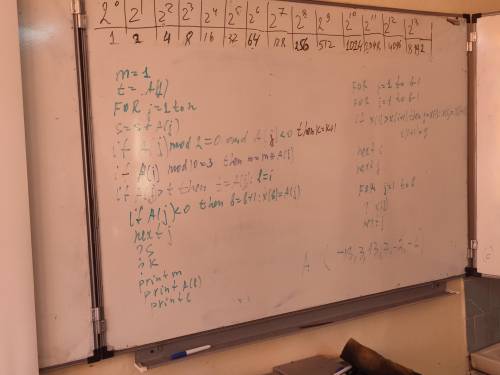 2⁰ 2¹ 2² 2³ 2⁴ 2⁵ 2⁶ 2⁷ 2⁸ 2⁹ 2¹⁰ 2¹¹ 2¹² 2¹³
1 2 4 8 16 32 64 128 256 512 1024 2048 4096 8192
m=1
t=A(1)
FOR j=1 to n
S=S+A(j)
if A(j) mod 2=0 and A(j)<0 then k=k+1
if A(j) mod 10=3 then m=m*A(j)
if A(j)>t then t=A(j): l=i
if A(j)<0 then b=b+1: x(b)=A(j)
next j
?S
?K
print m
print A(l)
print l
FOR i=1 to b-1
FOR j=1 to b-1
if x(j)>x(j+1) then
next j
next i
FOR j=1 to b
? x(j)
next j
A (-13, 3, 13, 2, -2, -6)